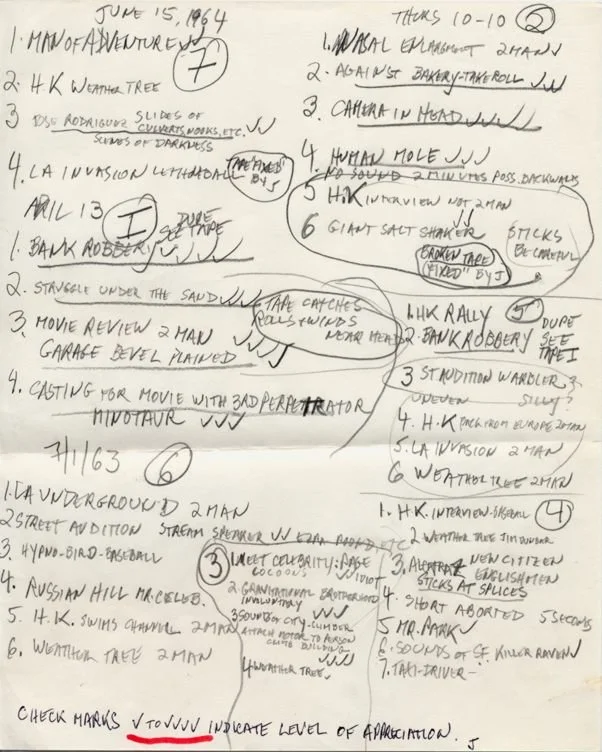 JUNE 15, 1964
7
1. MAN OF ADVENTURE ✓✓
2. H.K WEATHER TREE
3 DSE RODRIGUEZ SLIDES OF CULVERTS, NOOKS, ETC. ✓✓
SCENES OF DARKNESS
4. LA INVASION
TAPE "FIXED"
BY J
APRIL 13
I
DUPE
SEE TAPE
1. BANK ROBBERY ✓✓✓✓
2. STRUGGLE UNDER THE SAND ✓✓✓
TAPE CATCHES
ROLLS + WINDS
NEAR HEAD
3. MOVIE REVIEW 2 MAN ✓✓✓
GARAGE BEVEL PLAINED
4. CASTING FOR MOVIE WITH 3RD PERPETRATOR
MINOTAUR ✓✓✓
7/1/63
6
1. LA UNDERGROUND 2 MAN
2 STREET AUDITION STREAM SPEAKER ✓✓ EZRA POUND, ETC
3. HYPNO-BIRD-BASEBALL
4. RUSSIAN HILL MR. CELEB.
5. H.K. SWIMS CHANNEL 2 MAN
6. WEATHER TREE 2 MAN
THURS 10-10
2
1. NASAL ENLARGMENT 2 MAN ✓
2. AGAINST BAKERY-TAKEROLL ✓✓✓
3. CAMERA IN HEAD ✓✓✓✓
4. HUMAN MOLE ✓✓✓
NO SOUND 2 MINUTES POSS. BACKWARDS
5 H.K INTERVIEW NOT 2 MAN
6 GIANT SALT SHAKER ✓✓
STICKS
BE CAREFUL
BROKEN TAPE
"FIXED" BY J
5
1. HK RALLY
2. BANK ROBBERY
DUPE
SEE
TAPE I
3 ST AUDITION WARBLER
UNEVEN SILLY?
4. H.K BACK FROM EUROPE 2 MAN
5. LA INVASION 2 MAN
6 WEATHER TREE 2 MAN
3
1. MEET CELEBRITY: PAGE
COCOONS ✓✓ IDIOT
2 GRAVITATIONAL BROTHERHOOD
INVOLUNTARY ✓✓✓
3 SOUNDS OF CITY-CLIMBER
ATTACH MOTOR TO PERSON
CLIMB BUILDING ✓✓✓
4 WEATHER TREE ✓
4
1. H.K. INTERVIEW-BASEBALL
2 WEATHER TREE JIM DUNBAR
3. ALCATRAZ NEW CITIZEN
ENGLISHMEN
STICKS AT SPLICES
4. SHORT ABORTED 5 SECONDS
5 MR. PARK ✓
6. SOUNDS OF SF. KILLER RAVEN ✓
7. TAXI-DRIVER-
CHECK MARKS ✓ TO ✓✓✓✓ INDICATE LEVEL OF APPRECIATION. J